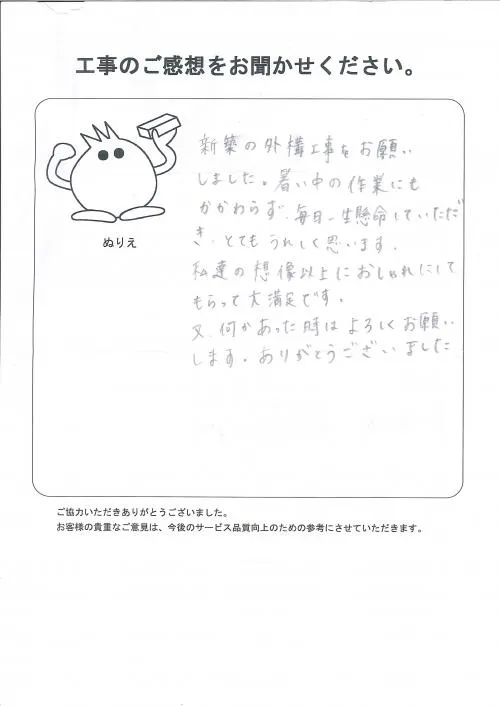 工事のご感想をお聞かせください。
新築の外構工事をお願い
しました。暑い中の作業にも
かかわらず、毎日一生懸命していただ
き、とてもうれしく思います。
私達の想像以上におしゃれにして
もらって大満足です。
又、何かあった時はよろしくお願い
します。ありがとうございました
ぬりえ
ご協力いただきありがとうございました。
お客様の貴重なご意見は、今後のサービス品質向上のための参考にさせていただきます。